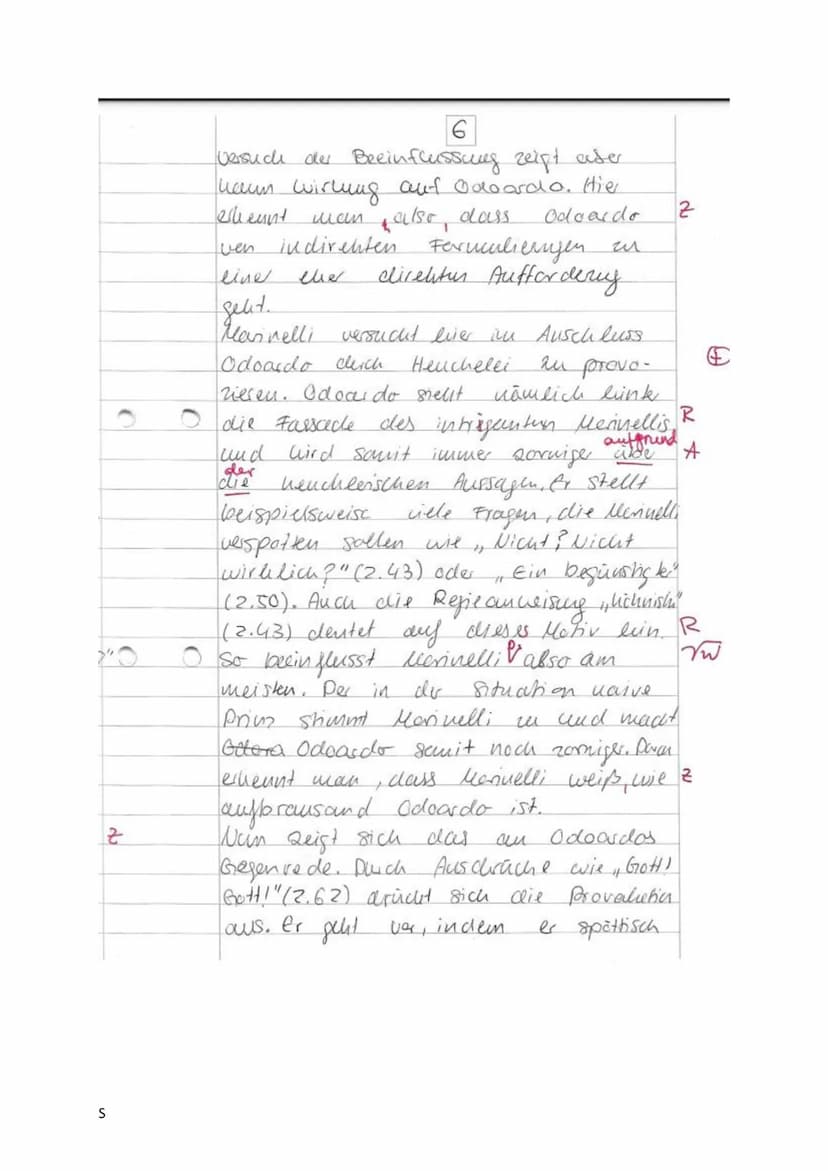 6
Versuch der Beeinflussung zeigt aber
kaum Wirkung auf Odoardo. Hier
erkennt man, also, dass Odoardo Z
von indirekten Formulierungen zu
einer eher direkten Aufforderung
geht.
Marinelli versucht hier im Anschluss
Odoardo durch Heuchelei zu provo-
zieren. Odoardo sieht nämlich hinter
die Fassade des intriganten Marinellis, R
aufgrund
und wird somit immer zorniger über A
der
die heuchlerischen Aussagen. Er stellt
beispielsweise viele Fragen, die Marinelli
verspotten sollen wie „Nicht? Nicht
wirklich?" (Z.43) oder „Ein begünstigter"
(Z.50). Auch die Regieanweisung „höhnisch"
(Z.43) deutet auf dieses Motiv hin. R
?" So beeinflusst Marinelli also am
meisten. Der in der Situation naive
Prinz stimmt Marinelli zu und macht
Odoardo somit noch zorniger. Daran
erkennt man, dass Marinelli weiß, wie Z
aufbrausand Odoardo ist.
Z Nun zeigt sich das an Odoardos
Gegenrede. Durch Ausdrücke wie „Gott!
Gott!" (Z.62) drückt sich die Provokation
aus. Er geht vor, indem er spöttisch
S